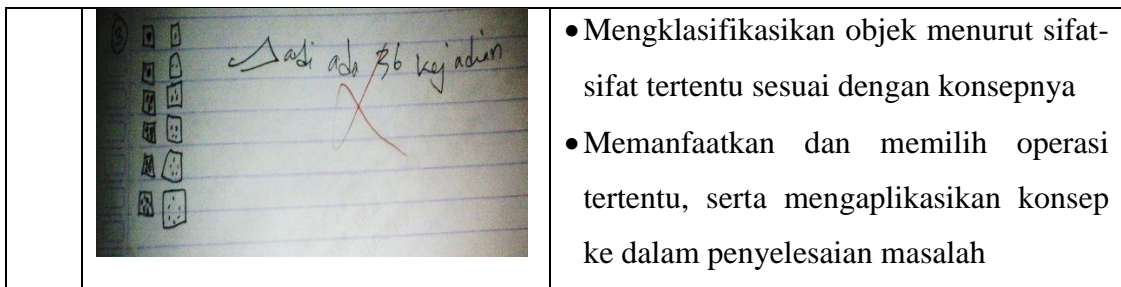 ③
Jadi ada 36 kejadian
• Mengklasifikasikan objek menurut sifat-
sifat tertentu sesuai dengan konsepnya
• Memanfaatkan dan memilih operasi
tertentu, serta mengaplikasikan konsep
ke dalam penyelesaian masalah